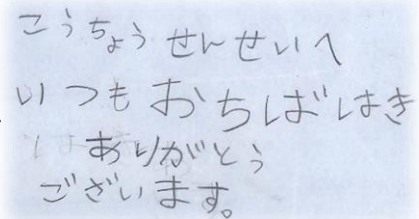 こうちょうせんせいへ
いつもおちばはき
ありがとう
ございます。